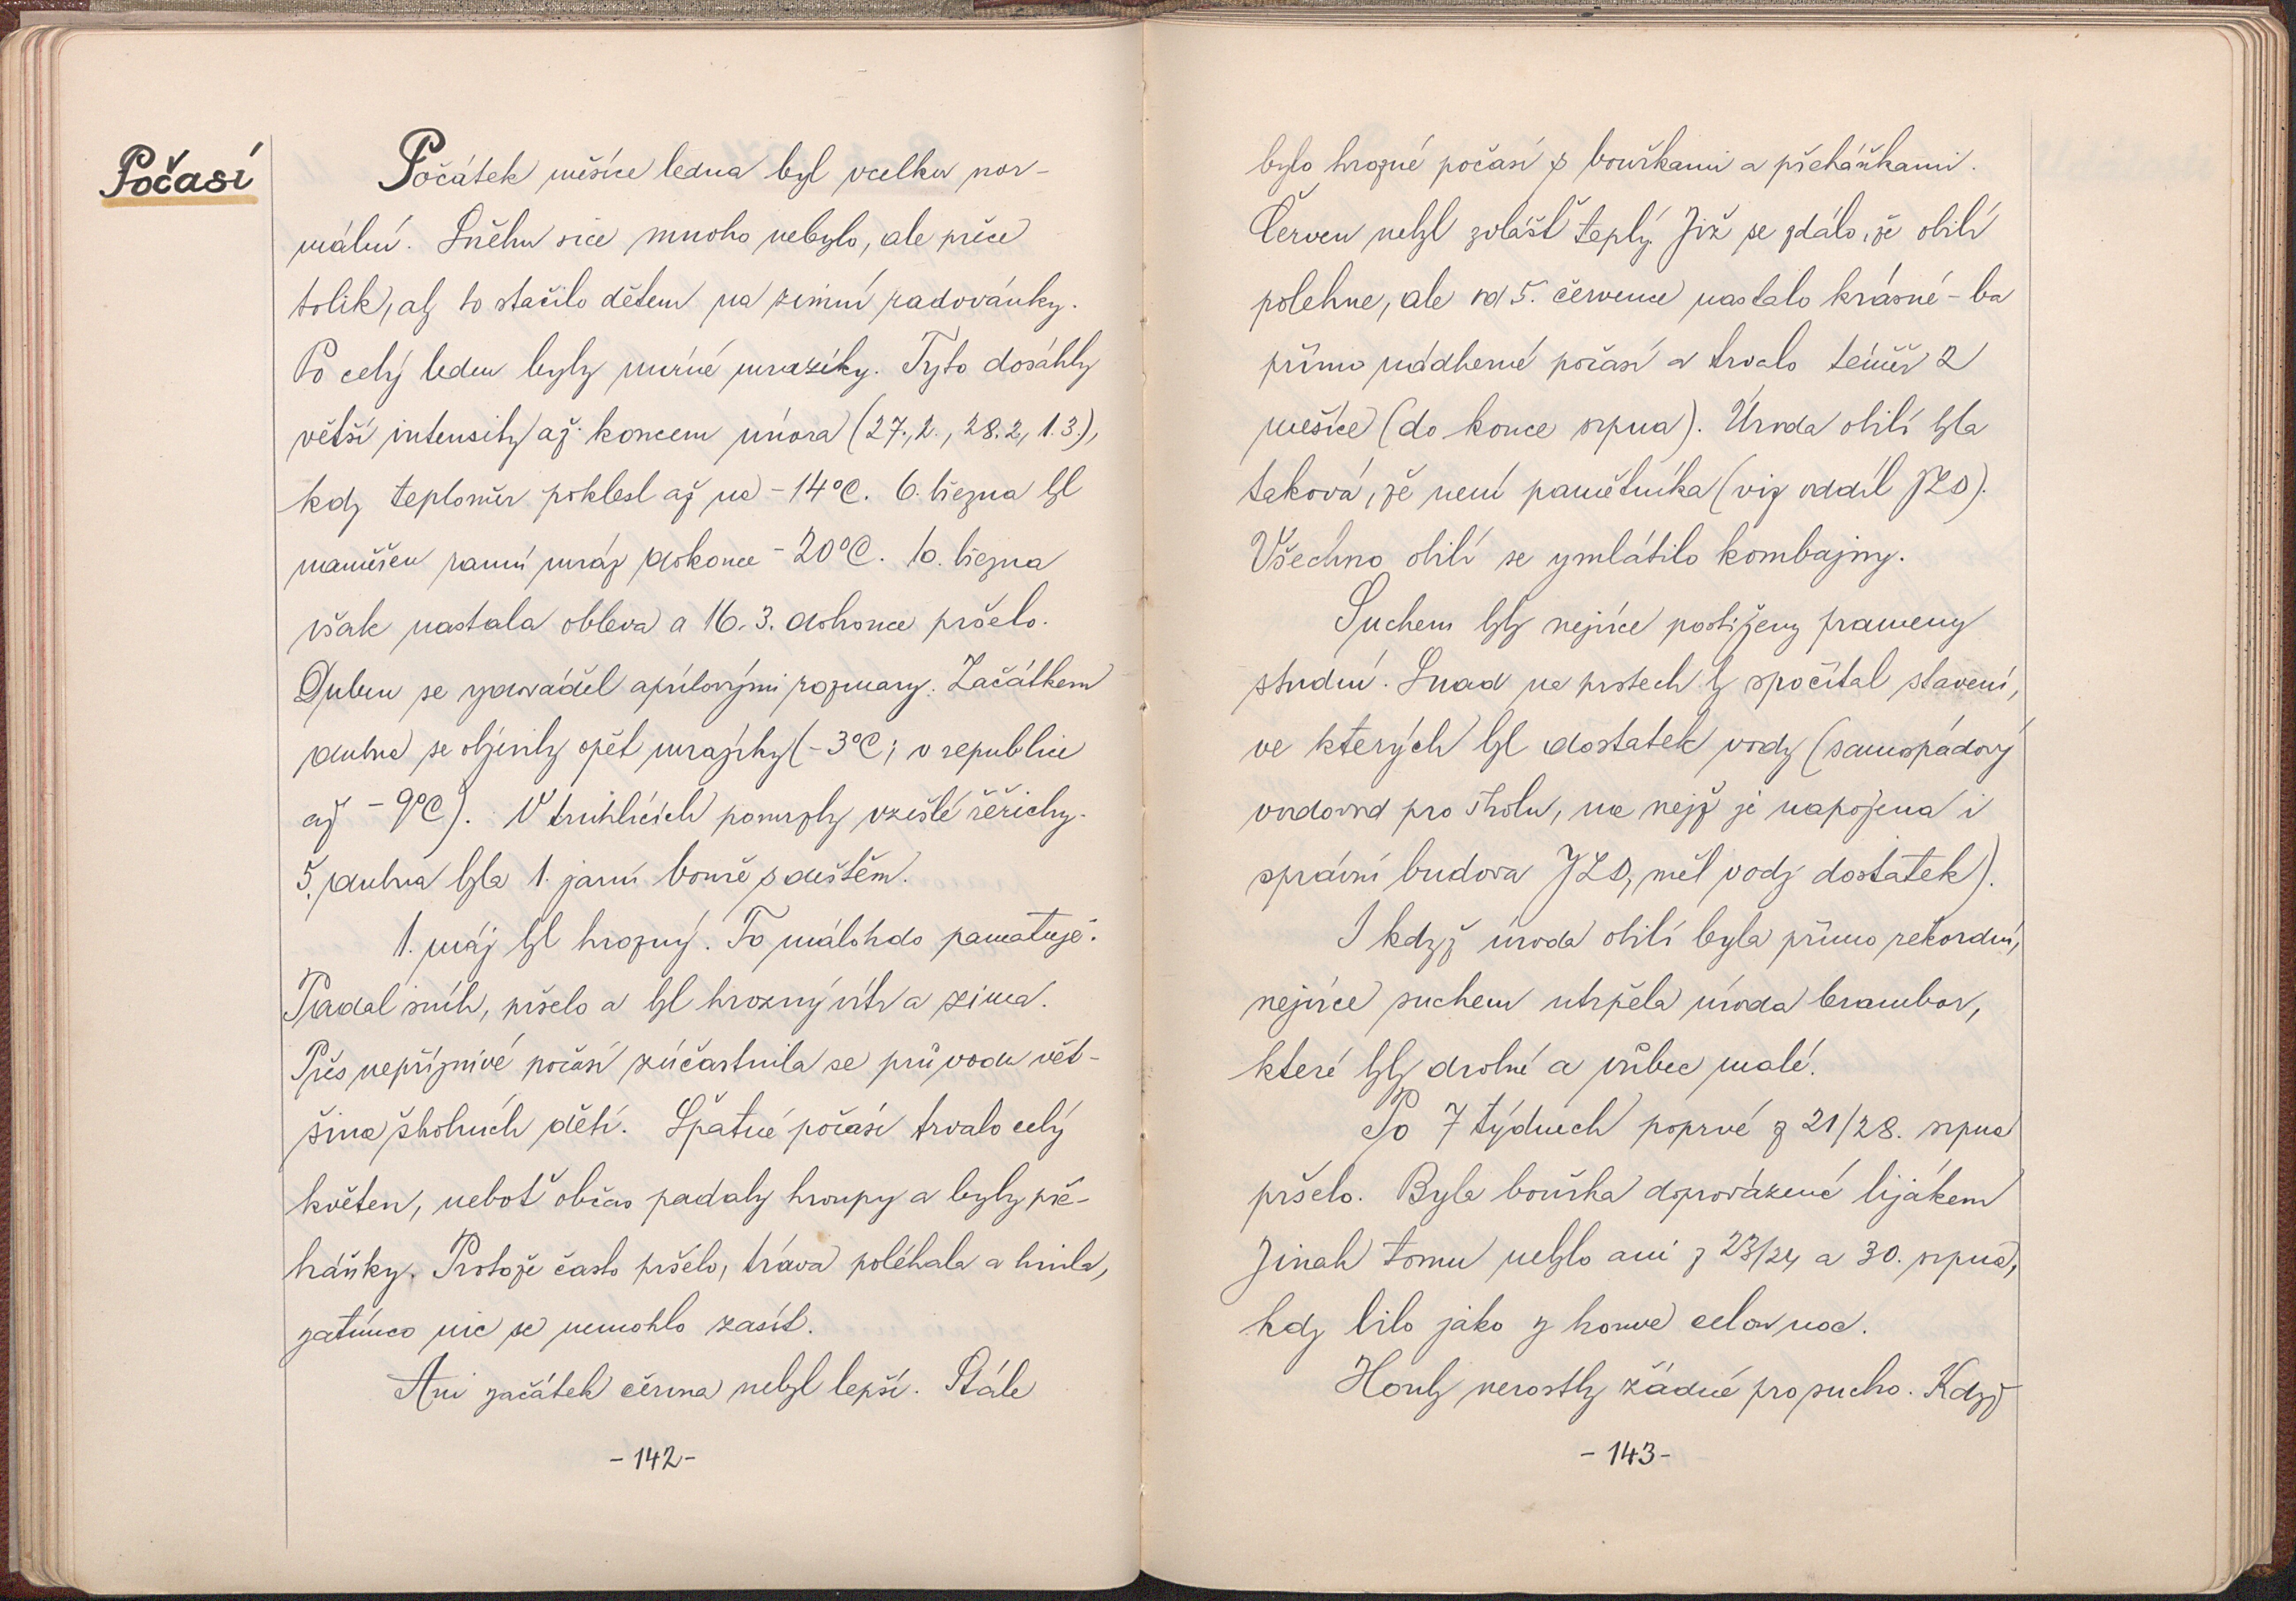 Počasí
Počátek měsíce ledna byl vcelku nor-
mální. Sněhu sice mnoho nebylo, ale přece
tolik, aby to stačilo dětem na zimní radovánky.
Po celý leden byly mírné mrazíky. Tyto dosáhly
větší intensity až koncem února (27.2., 28.2, 1.3.),
kdy teploměr poklesl až na -14°C. 6. března byl
naměřen ranní mráz dokonce -20°C. 10. března
však nastala obleva a 16.3. dokonce pršelo.
Duben se vyznačil aprílovými rozmary. Začátkem
dubna se objevily opět mrazíky (-3°C; v republice
až -9°C). V truhlících pomrzly vzešlé řeřichy.
5. dubna byla 1. jarní bouře s deštěm.
1. máj byl hrozný. To málokdo pamatuje.
Padal sníh, pršelo a byl hrozný vítr a zima.
Přes nepříznivé počasí zúčastnila se průvodu vět-
šina školních dětí. Špatné počasí trvalo celý
květen, neboť občas padaly kroupy a byly pře-
háňky. Protože často pršelo, tráva poléhala a hnila,
zatímco nic se nemohlo zasít.
Ani začátek června nebyl lepší. Stále
-142-
bylo hrozné počasí s bouřkami a přeháňkami.
Červen nebyl zvlášť teplý. Již se zdálo, že obilí
polehne, ale od 5. července nastalo krásné - ba
přímo nádherné počasí a trvalo téměř 2
měsíce (do konce srpna). Úroda obilí byla
taková, že není pamětníka (viz oddíl JZD).
Všechno obilí se vymlátilo kombajny.
Suchem byly nejvíce postiženy prameny
studní. Snad na prstech by spočítal stavení,
ve kterých byl dostatek vody (samospádový
vodovod pro školu, na nejž je napojena i
správní budova JZD, měl vody dostatek).
I když úroda obilí byla přímo rekordní,
nejvíce suchem utrpěla úroda brambor,
které byly drobné a vůbec malé.
Po 7 týdnech poprvé z 21/28. srpna
pršelo. Byla bouřka doprovázená lijákem
Jinak tomu nebylo ani z 23/24 a 30. srpna,
kdy lilo jako z konve celou noc.
Houby nerostly žádné pro sucho. Když
-143-